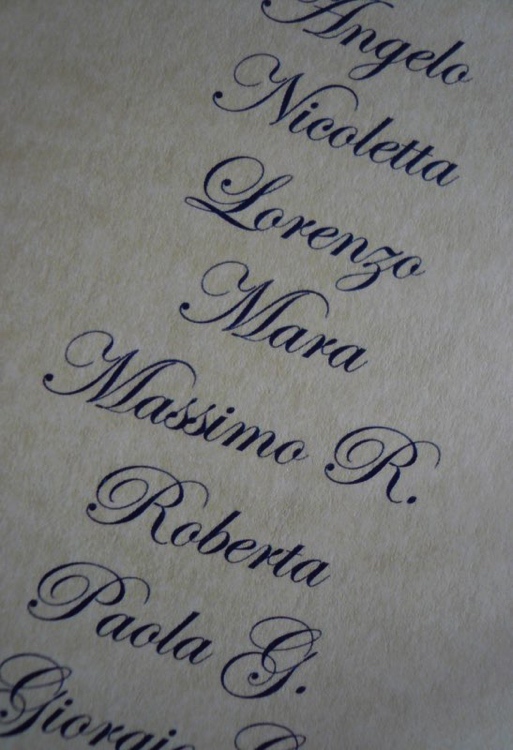 Angelo
Nicoletta
Lorenzo
Mara
Massimo R.
Roberta
Paola G.
Giorgio